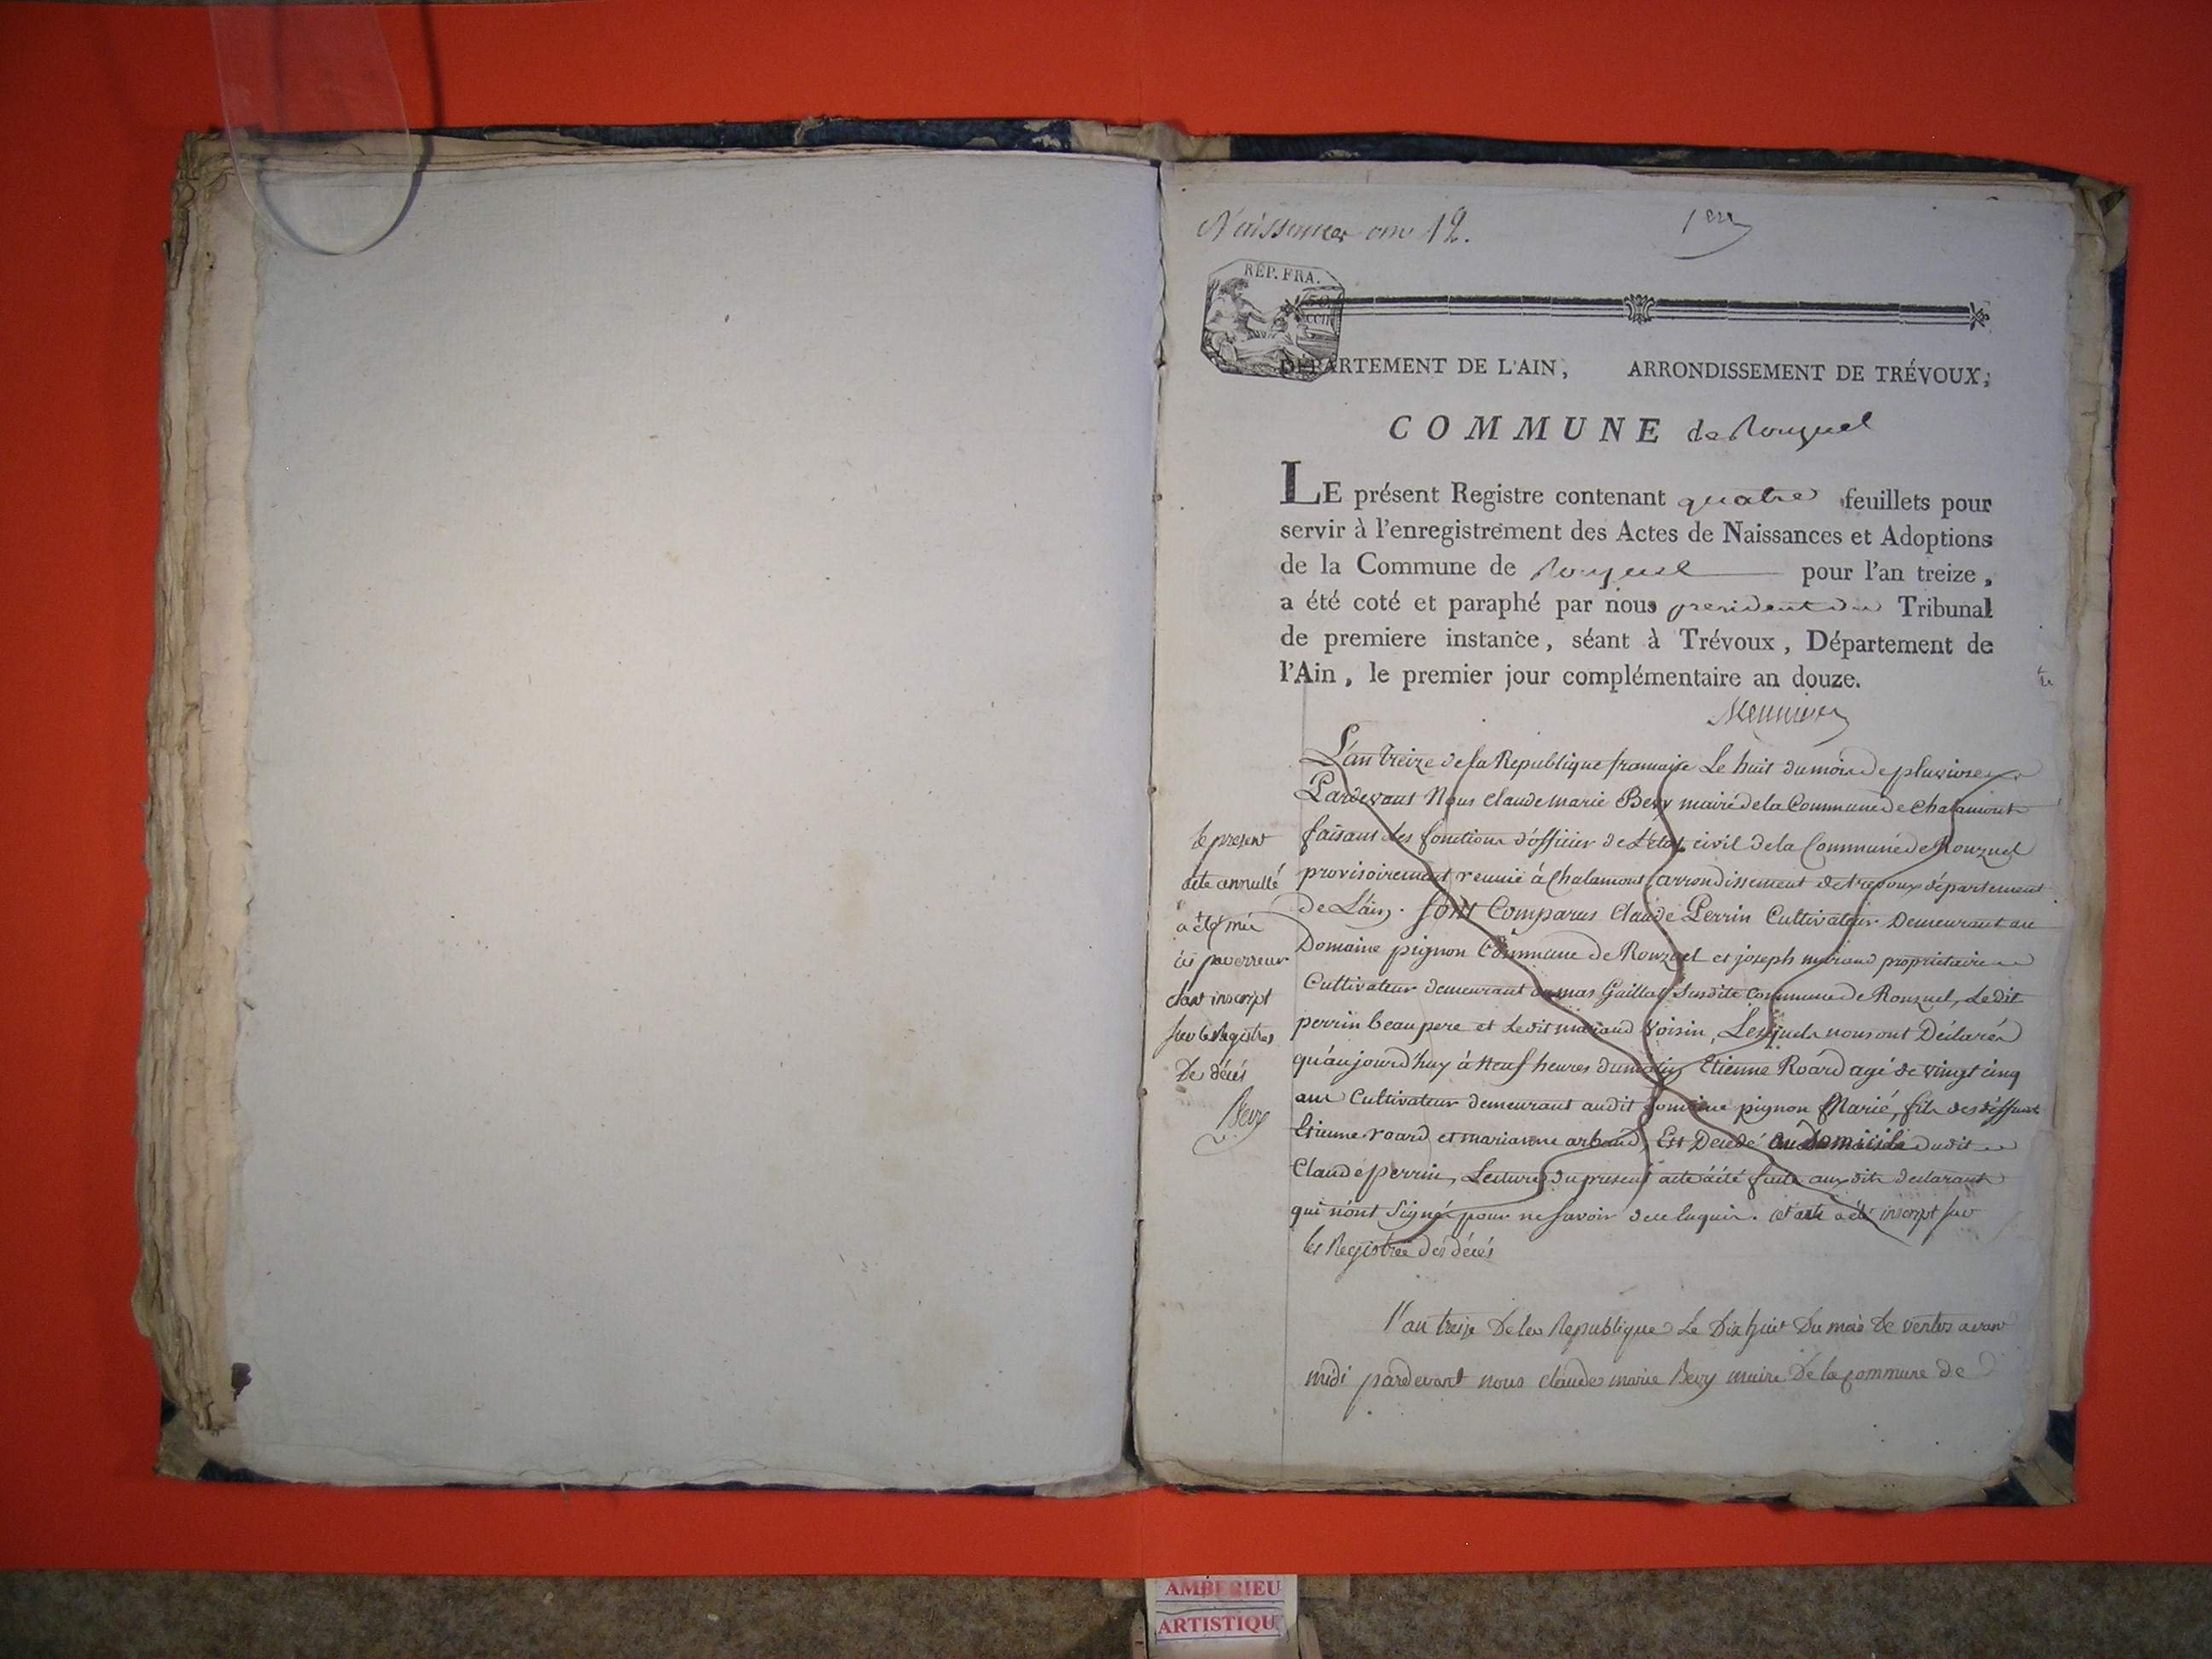 Naissances an 12.
1er
RÉP. FRA.
50
CEN
DÉPARTEMENT DE L'AIN, ARRONDISSEMENT DE TRÉVOUX,
COMMUNE de Ronzuel
LE présent Registre contenant quatre feuillets pour
servir à l'enregistrement des Actes de Naissances et Adoptions
de la Commune de Ronzuel pour l'an treize,
a été coté et paraphé par nous president du Tribunal
de premiere instance, séant à Trévoux, Département de
l'Ain, le premier jour complémentaire an douze.
L'an treize de la Republique francaise Le huit du mois de pluviose
Pardevant Nous Claude marie Bevy maire de la Commune de Chalamont
faisant les fonctions d'officier de L'etat civil de la Commune de Ronzuel
provisoirement reunie à Chalamont, arrondissement de trevoux département
de L'ain. sont Comparus Claude Perrin Cultivateur Demeurant au
Domaine pignon Commune de Ronzuel et joseph proprietaire
Cultivateur demeurant au mas Gaillat Susdite Commune de Ronzuel, Ledit
perrin beau pere et Ledit voisin, Lesquels nous ont Déclaré
qu'aujourd'huy à Neuf heures du matin Etienne Roard agé de vingt cinq
ans Cultivateur demeurant audit Domaine pignon Marié, fils des deffunts
Etienne roard et marianne arbaud, Est Decedé au domicile dudit
Claude perrin, Lecture du present acte a été faite auxdits declarants
qui n'ont Signé pour ne savoir de ce enquis. cet acte a été inscript sur
les Registres des décés
le present
acte annullé
a été mis
ici par erreur
etant inscript
sur les Registres
De décés
Bevy
l'an treize De la Republique Le Dix huit Du mois de ventos avant
midi pardevant nous claude marie Bevy maire De la commune de
AMBERIEU
ARTISTIQU